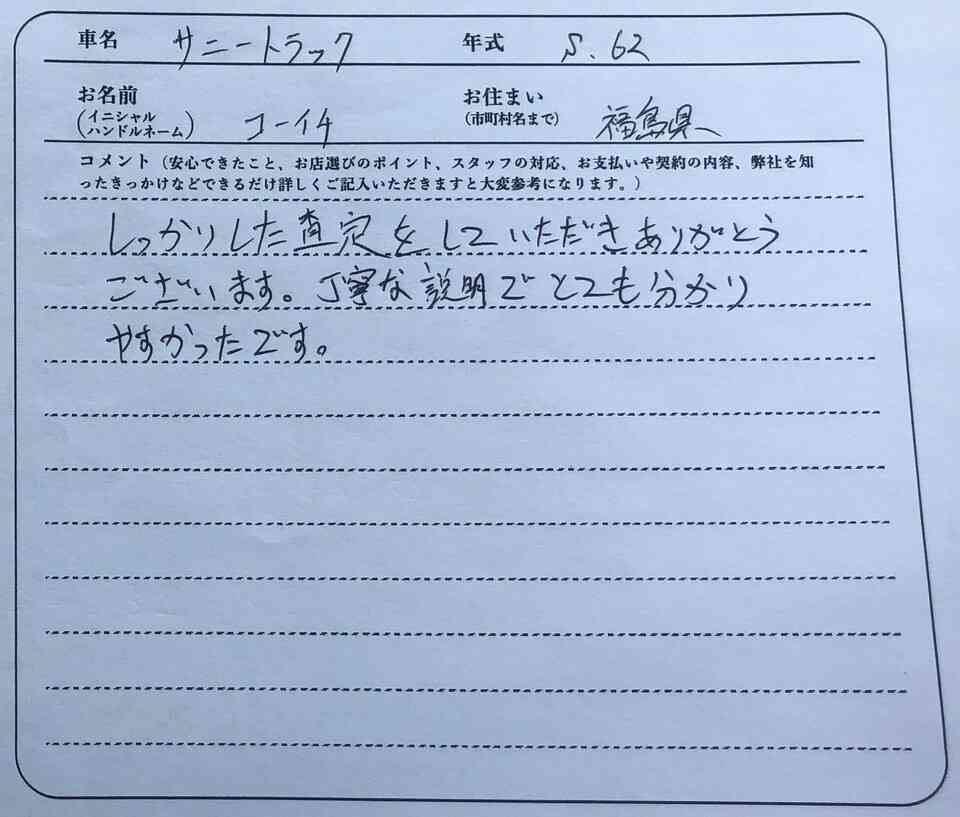 車名 サニートラック 年式 S.62
お名前 (イニシャル ハンドルネーム) コーイチ お住まい (市町村名まで) 福島県
コメント（安心できたこと、お店選びのポイント、スタッフの対応、お支払いや契約の内容、弊社を知
ったきっかけなどできるだけ詳しくご記入いただきますと大変参考になります。）
しっかりした査定をしていただきありがとう
ございます。丁寧な説明でとても分かり
やすかったです。